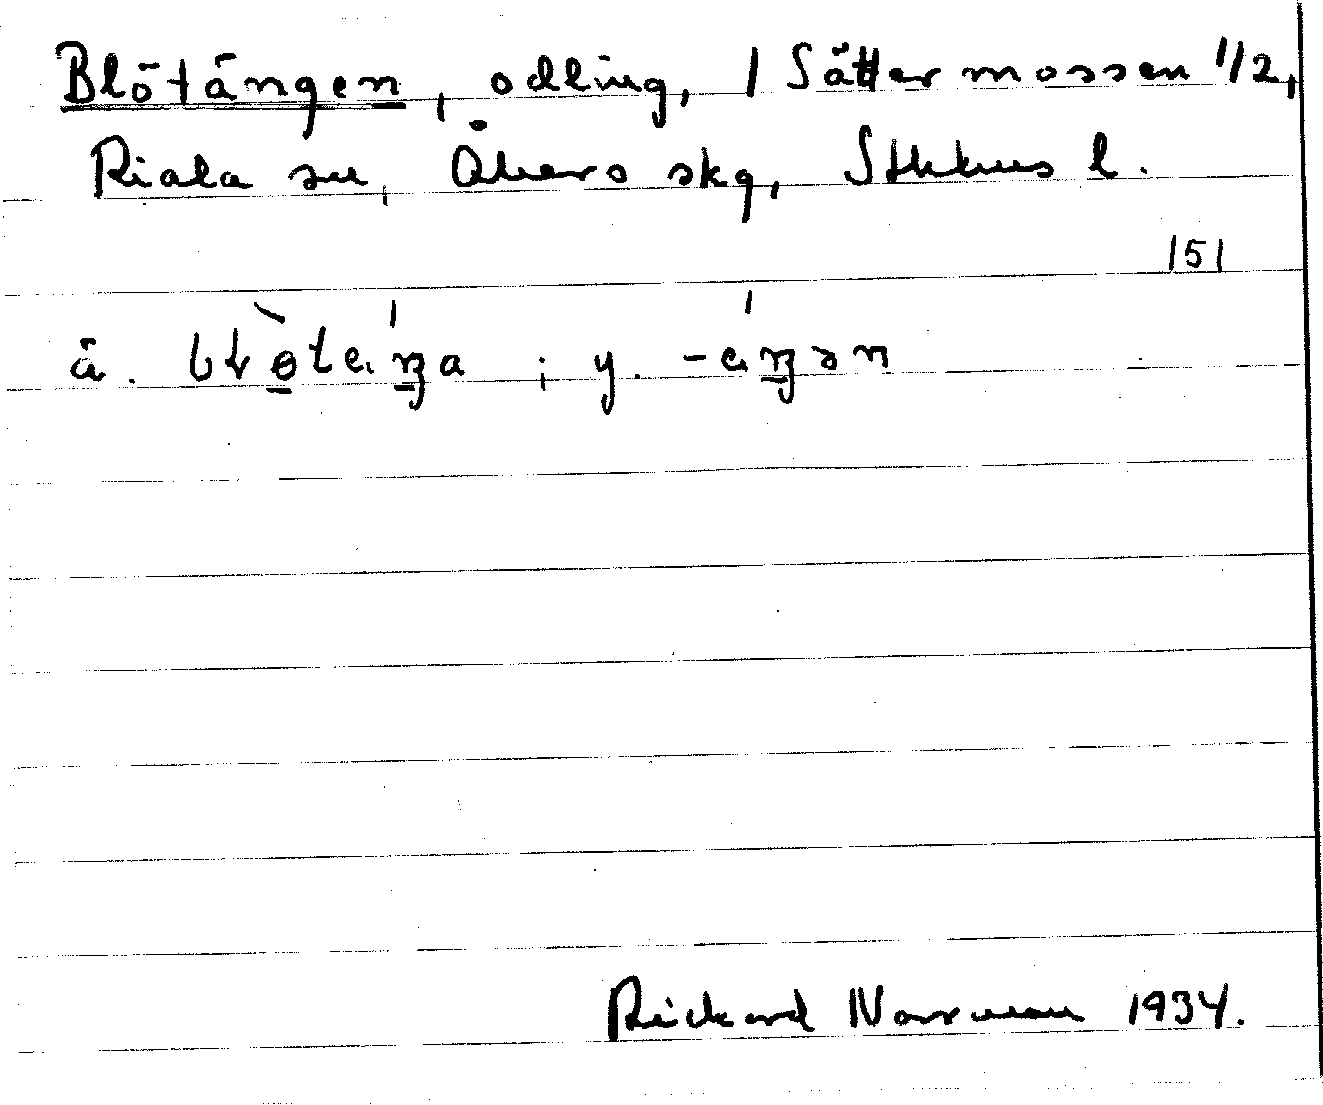 Blötängen, odling, / Sättermossen 1/2,
Riala sn, Åkers skg, Sthlms l.
151
ä. ; y.
Rickard Norrman 1934.